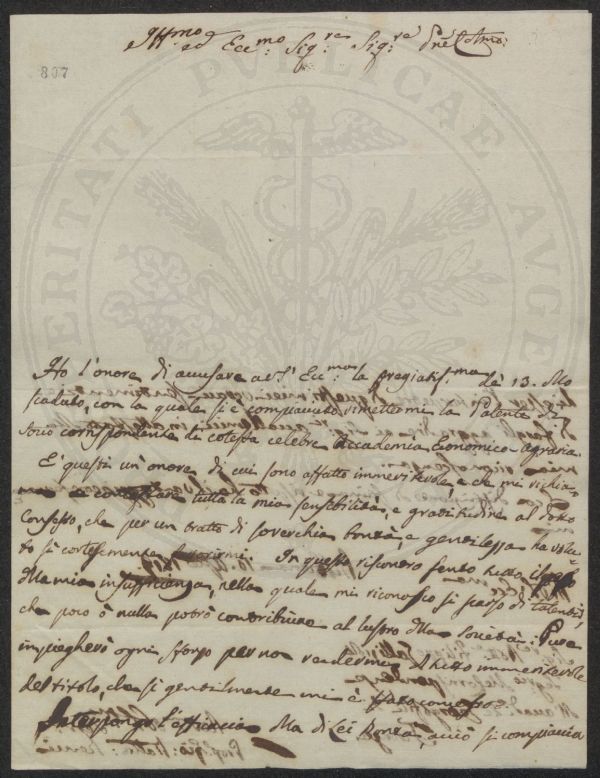 Ill.mo ed Ecc.mo Sig.re Sig.re Prẽ Colmo:
807
PROSPERITATI PUBLICAE AUGENDAE
Ho l'onore di accusare a V.S. Ecc.ma la pregiatis.ma de' 13. Mo
scaduto, con la quale si è compiaciuto rimettermi la Patente di
Socio corrispondente di cotesta celebre Accademia Economico-agraria.
È questi un onore di cui sono affatto immeritevole e che mi richia
tutta la mia sensibilità, e gratitudine al Dotto
Consesso, che per un tratto di soverchia bontà, e gentilezza ha volu=
to sì cortesemente favorirmi. In questo riscontro sento tutto il peso
della mia insufficienza, nella quale mi riconosco sì scarso di talenti,
che poco ò nulla potrò contribuire al lustro della Società: Pure
impiegherò ogni sforzo per non rendermi di tutto immeritevole
del titolo, che sì gentilmente mi è stato concesso.
Interpongo l'efficacia della di Lei Bontà, acciò si compiaccia